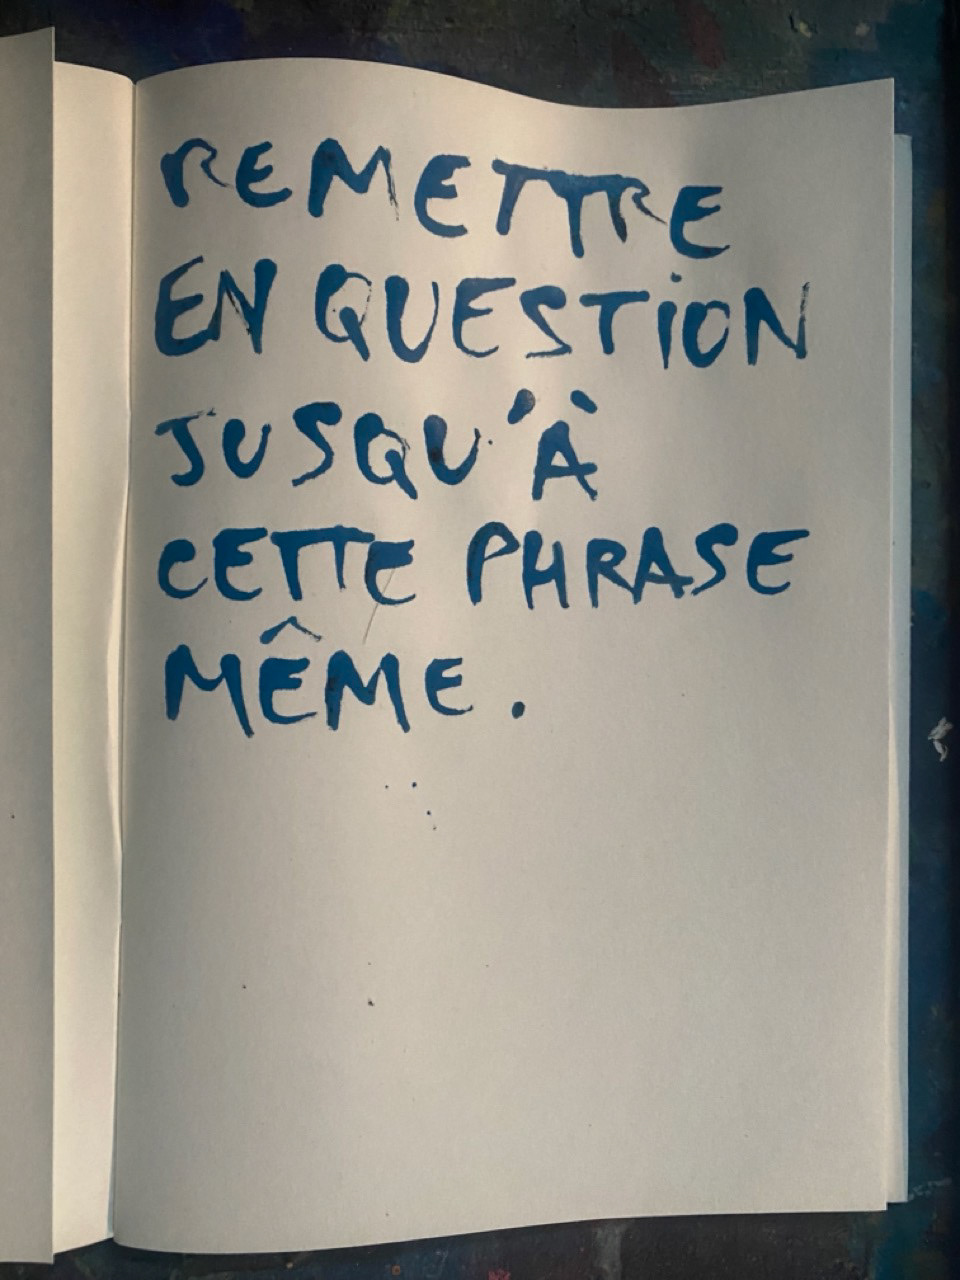 REMETTRE
EN QUESTION
JUSQU'À
CETTE PHRASE
MÊME.